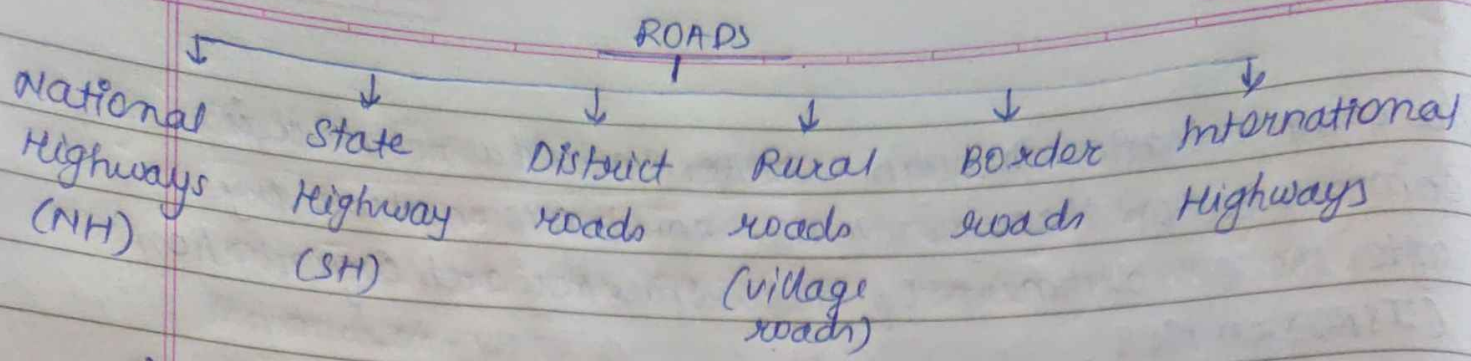 ROADS
National Highways (NH)
State Highway (SH)
District roads
Rural roads (village roads)
Border roads
International Highways